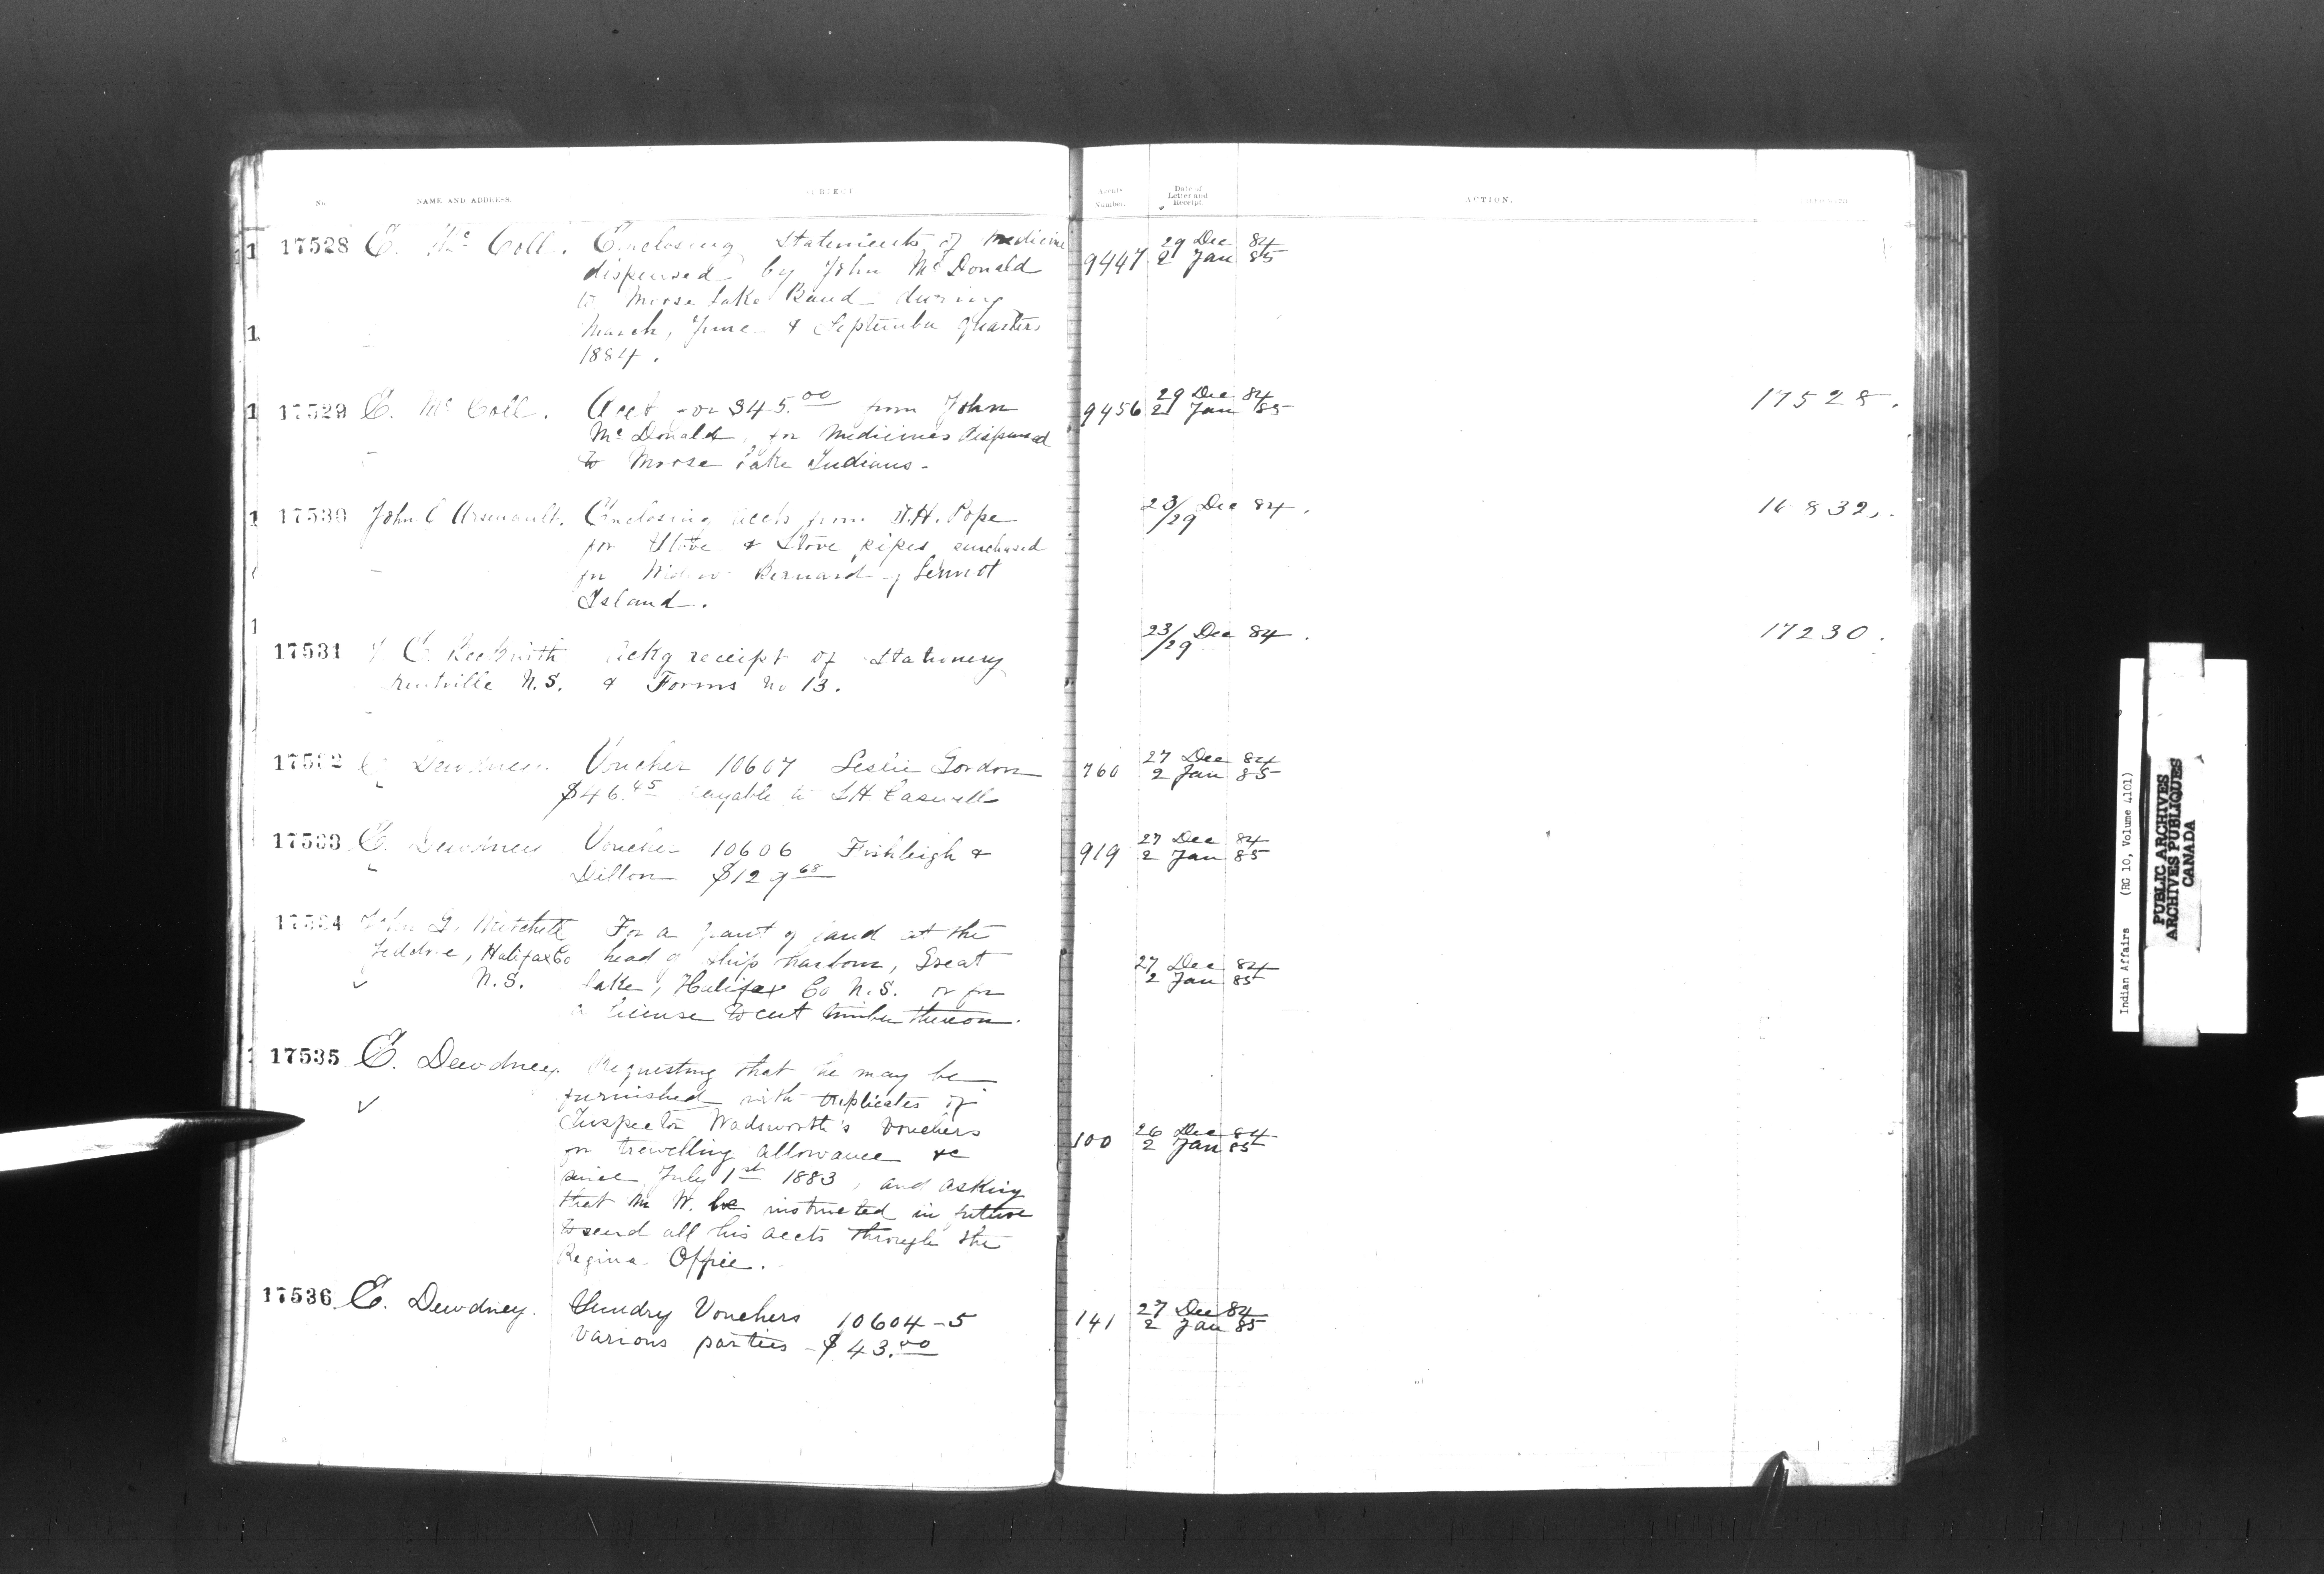 No.
NAME AND ADDRESS
SUBJECT.
Agents Number.
Date of Letter and Receipt.
ACTION.
17528 E. McColl. Enclosing statements of medicine
dispensed by John McDonald
to Moose Lake Band during
March, June & September quarters
1884.
9447 29 Dec 84
2 Jan 85
17529 E. McColl. Acct for $45.00 from John
McDonald, for medicines dispensed
to Moose Lake Indians.
9456 29 Dec 84
2 Jan 85
17528.
17530 John O Arsenault. Enclosing accts from W.H. Pope
for Stove & Stove pipes purchased
for Widow Bernard of Lennox
Island.
23/29 Dec 84.
16832.
17531 C. Beckwith Ackg receipt of Stationery
Kentville N.S. & Forms No 13.
23/29 Dec 84.
17230.
17532 E. Dewdney Voucher 10607 Leslie Gordon
$46.45 payable to L.H. Caswell
760 27 Dec 84
2 Jan 85
17533 E. Dewdney Voucher 10606 Fishleigh &
Dillon $129 68
919 27 Dec 84
2 Jan 85
17534 John G. Mitchell For a grant of land at the
Jeddore, Halifax Co head of Ship Harbour, Great
N.S. Lake, Halifax Co N.S. or for
a license to cut timber thereon.
27 Dec 84
2 Jan 85
17535 E. Dewdney. Requesting that he may be
furnished with triplicates of
Inspector Wadsworth's vouchers
for travelling allowance &c
since July 1st 1883, and asking
that Mr W. be instructed in future
to send all his accts through the
Regina Office.
100 26 Dec 84
2 Jan 85
17536 E. Dewdney. Sundry Vouchers 10604-5
various parties - $43.00
141 27 Dec 84
2 Jan 85
Indian Affairs (RG 10, Volume 4101)
PUBLIC ARCHIVES
ARCHIVES PUBLIQUES
CANADA